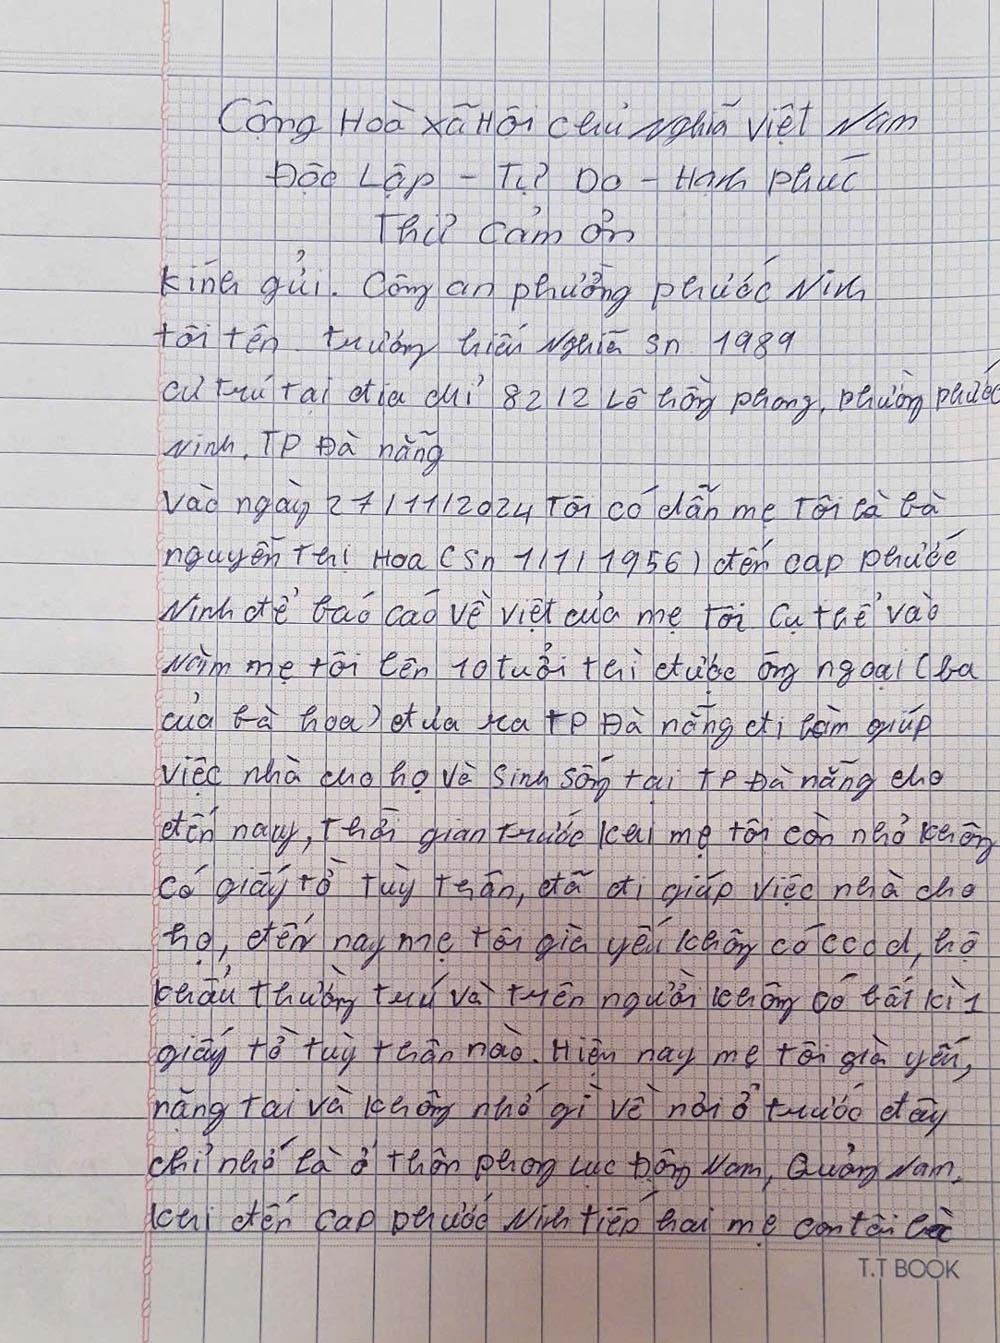 Cộng Hoà xã Hội chủ Nghĩa Việt Nam
Độc Lập - Tự Do - Hạnh phúc
Thư cảm ơn
kính gửi. Công an phường phước Ninh
tôi tên trương hiếu Nghĩa Sn 1989
cư trú tại địa chỉ 82 12 Lê hồng phong, phường phước
Ninh, TP Đà nẵng
Vào ngày 27/11/2024 Tôi có dẫn mẹ Tôi là bà
nguyễn Thị Hoa (Sn 1/1/1956) đến cap phước
Ninh để báo cáo về việt của mẹ tôi cụ thể vào
năm mẹ tôi lên 10 tuổi thì được ông ngoại (ba
của bà hoa) đưa ra TP Đà nẵng đi làm giúp
việc nhà cho họ và sinh sống tại TP Đà nẵng cho
đến nay, thời gian trước khi mẹ tôi còn nhỏ không
có giấy tờ tuỳ thân, đã đi giúp việc nhà cho
họ, đến nay mẹ tôi già yếu không có cccd, hộ
khẩu thường trú và trên người không có bất kì 1
giấy tờ tuỳ thân nào. Hiện nay mẹ tôi già yếu,
nặng tai và không nhớ gì về nơi ở trước đây
chỉ nhớ là ở thôn phong Lục Đông Nam, Quảng Nam.
khi đến cap phước Ninh tiếp hai mẹ con tôi là
T.T BOOK